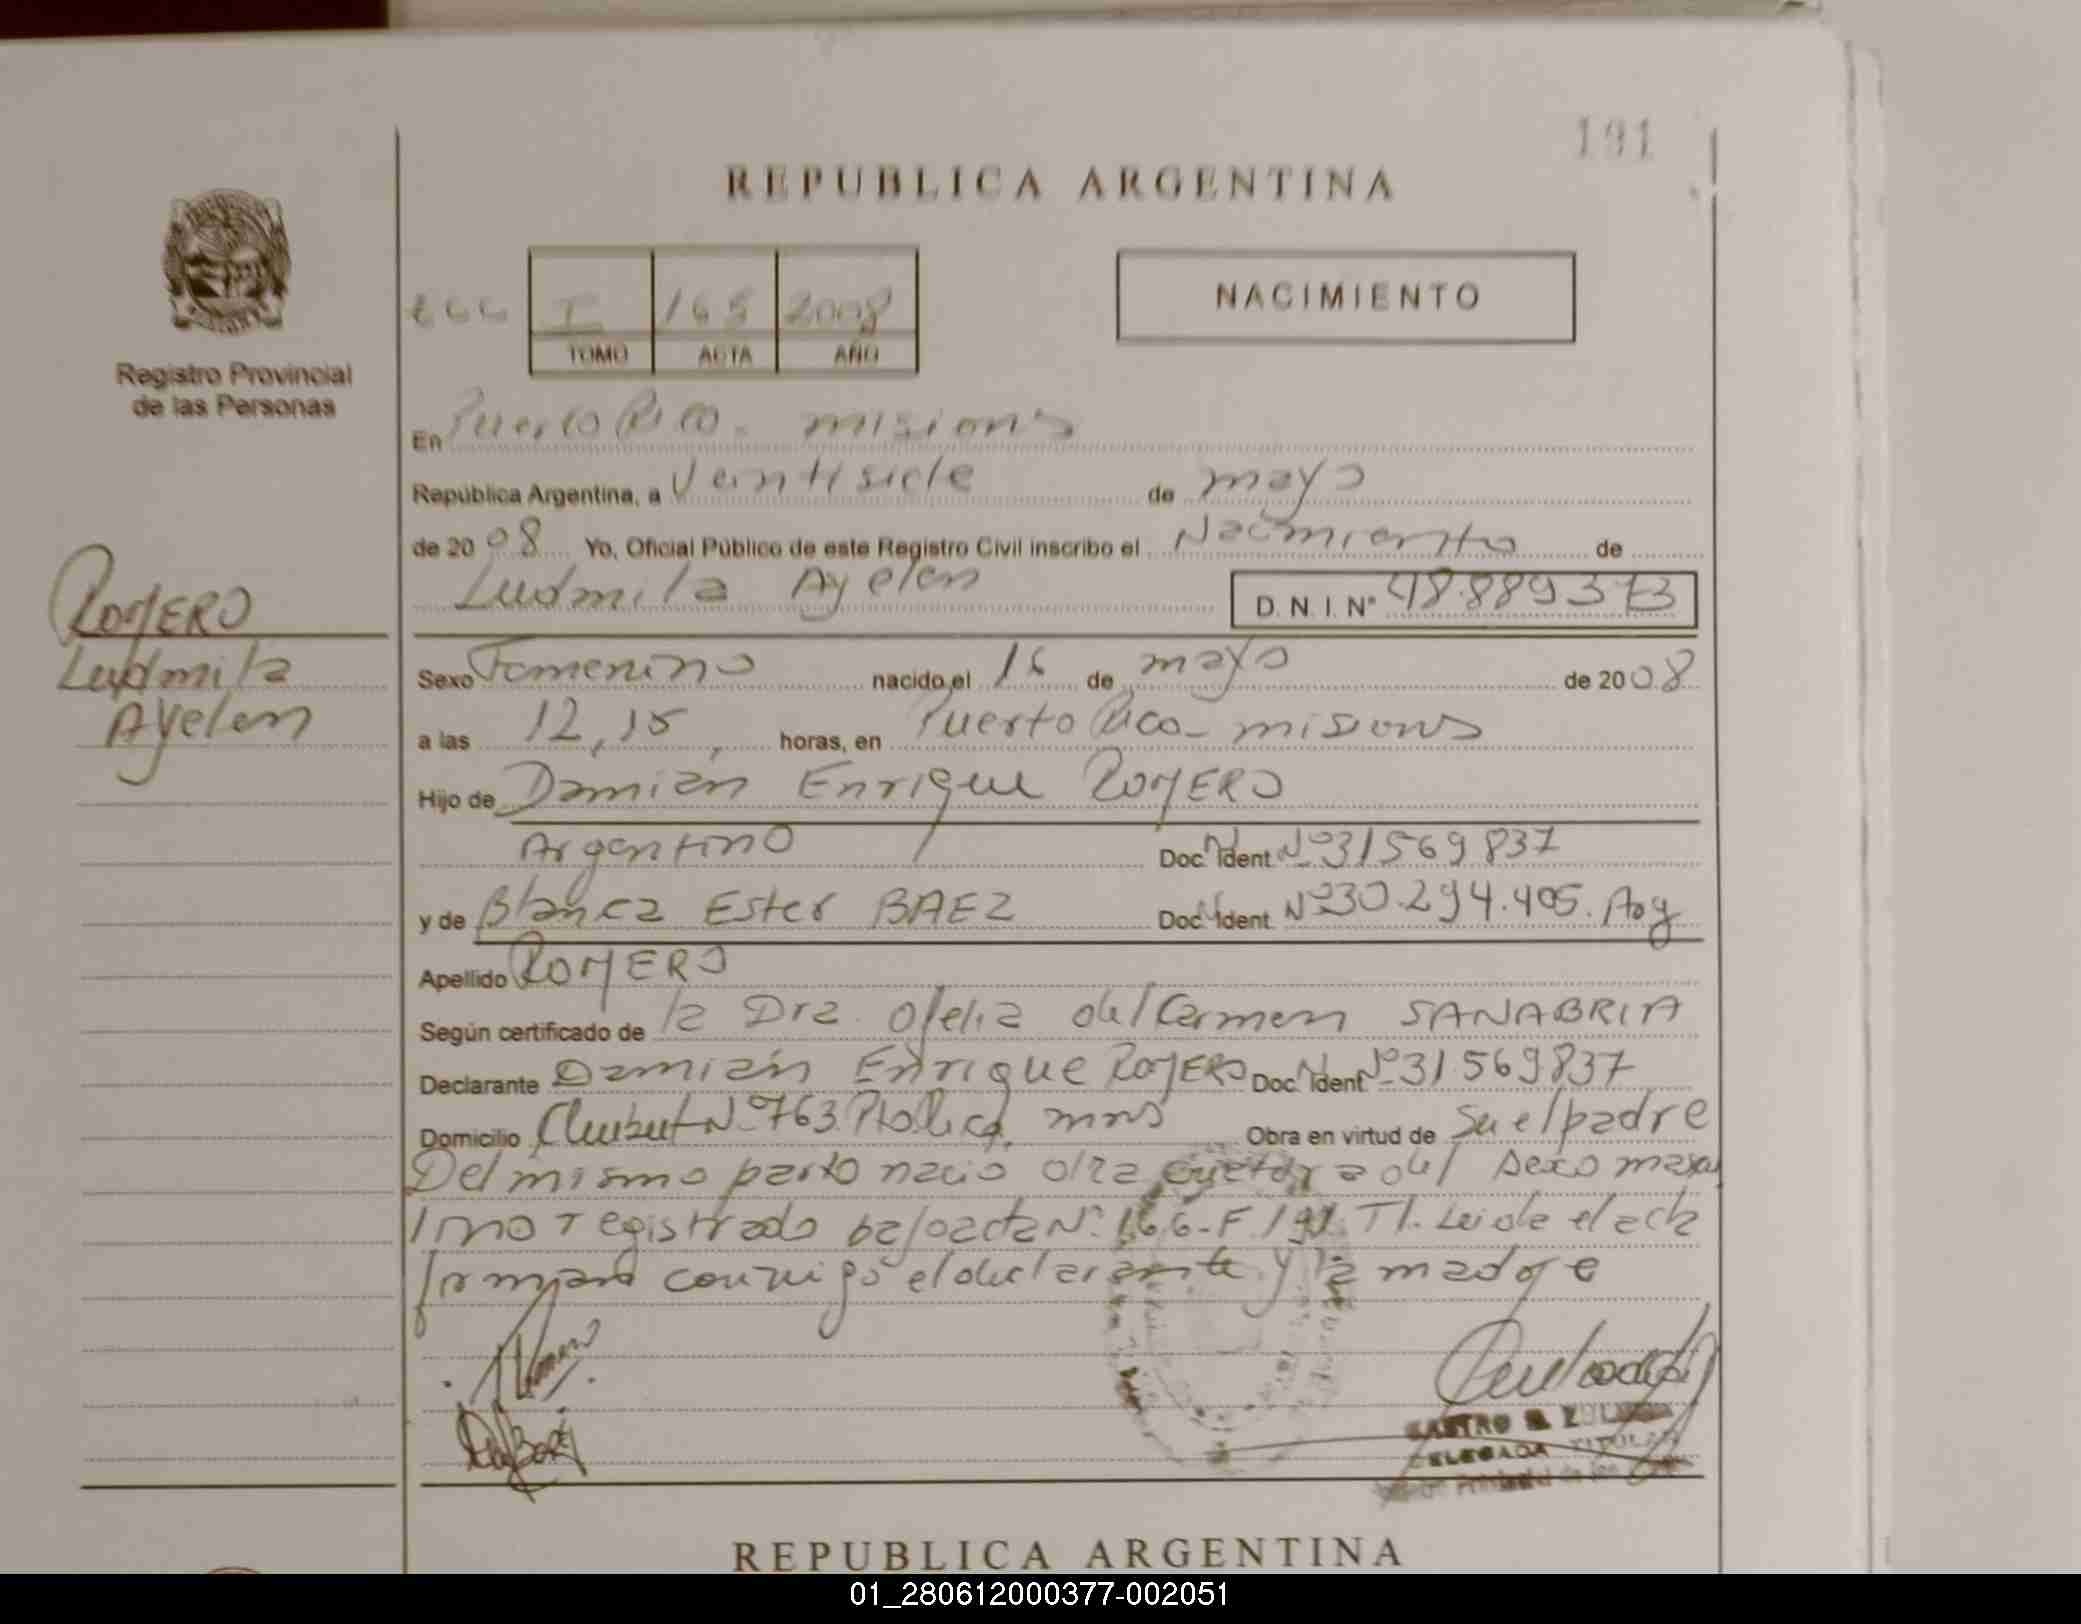 191
REPUBLICA ARGENTINA
NACIMIENTO
I 165 2008
TOMO ACTA AÑO
Registro Provincial
de las Personas
En Puerto Rico - misions
República Argentina, a Veintisiete de mayo
de 2008 Yo, Oficial Público de este Registro Civil inscribo el Nacimiento de
Ludmila Ayelen D.N.I. Nº 48.889.373
ROMERO
Ludmila
Ayelen
Sexo Femenino nacido el 16 de mayo de 2008
a las 12,15, horas, en Puerto Rico - misions
Hijo de Damián Enrique ROMERO
Argentino Doc. Ident Nº 31569837
y de Blanca Ester BAEZ Doc. Ident. Nº 30.294.405. Arg
Apellido ROMERO
Según certificado de la Dra. Ofelia del Carmen SANABRIA
Declarante Damián Enrique ROMERO Doc. Ident Nº 31.569837
Domicilio Chubut Nº 763 Pto Rico, mns Obra en virtud de Su el padre
Del mismo parto nacio otra del sexo mascu
lino registrado bajo acta Nº 166-F.191. T I. Leida el acta
firman conmigo el declarante y la madre
CASTRO
DELEGADA TITULAR
REPUBLICA ARGENTINA
01_280612000377-002051